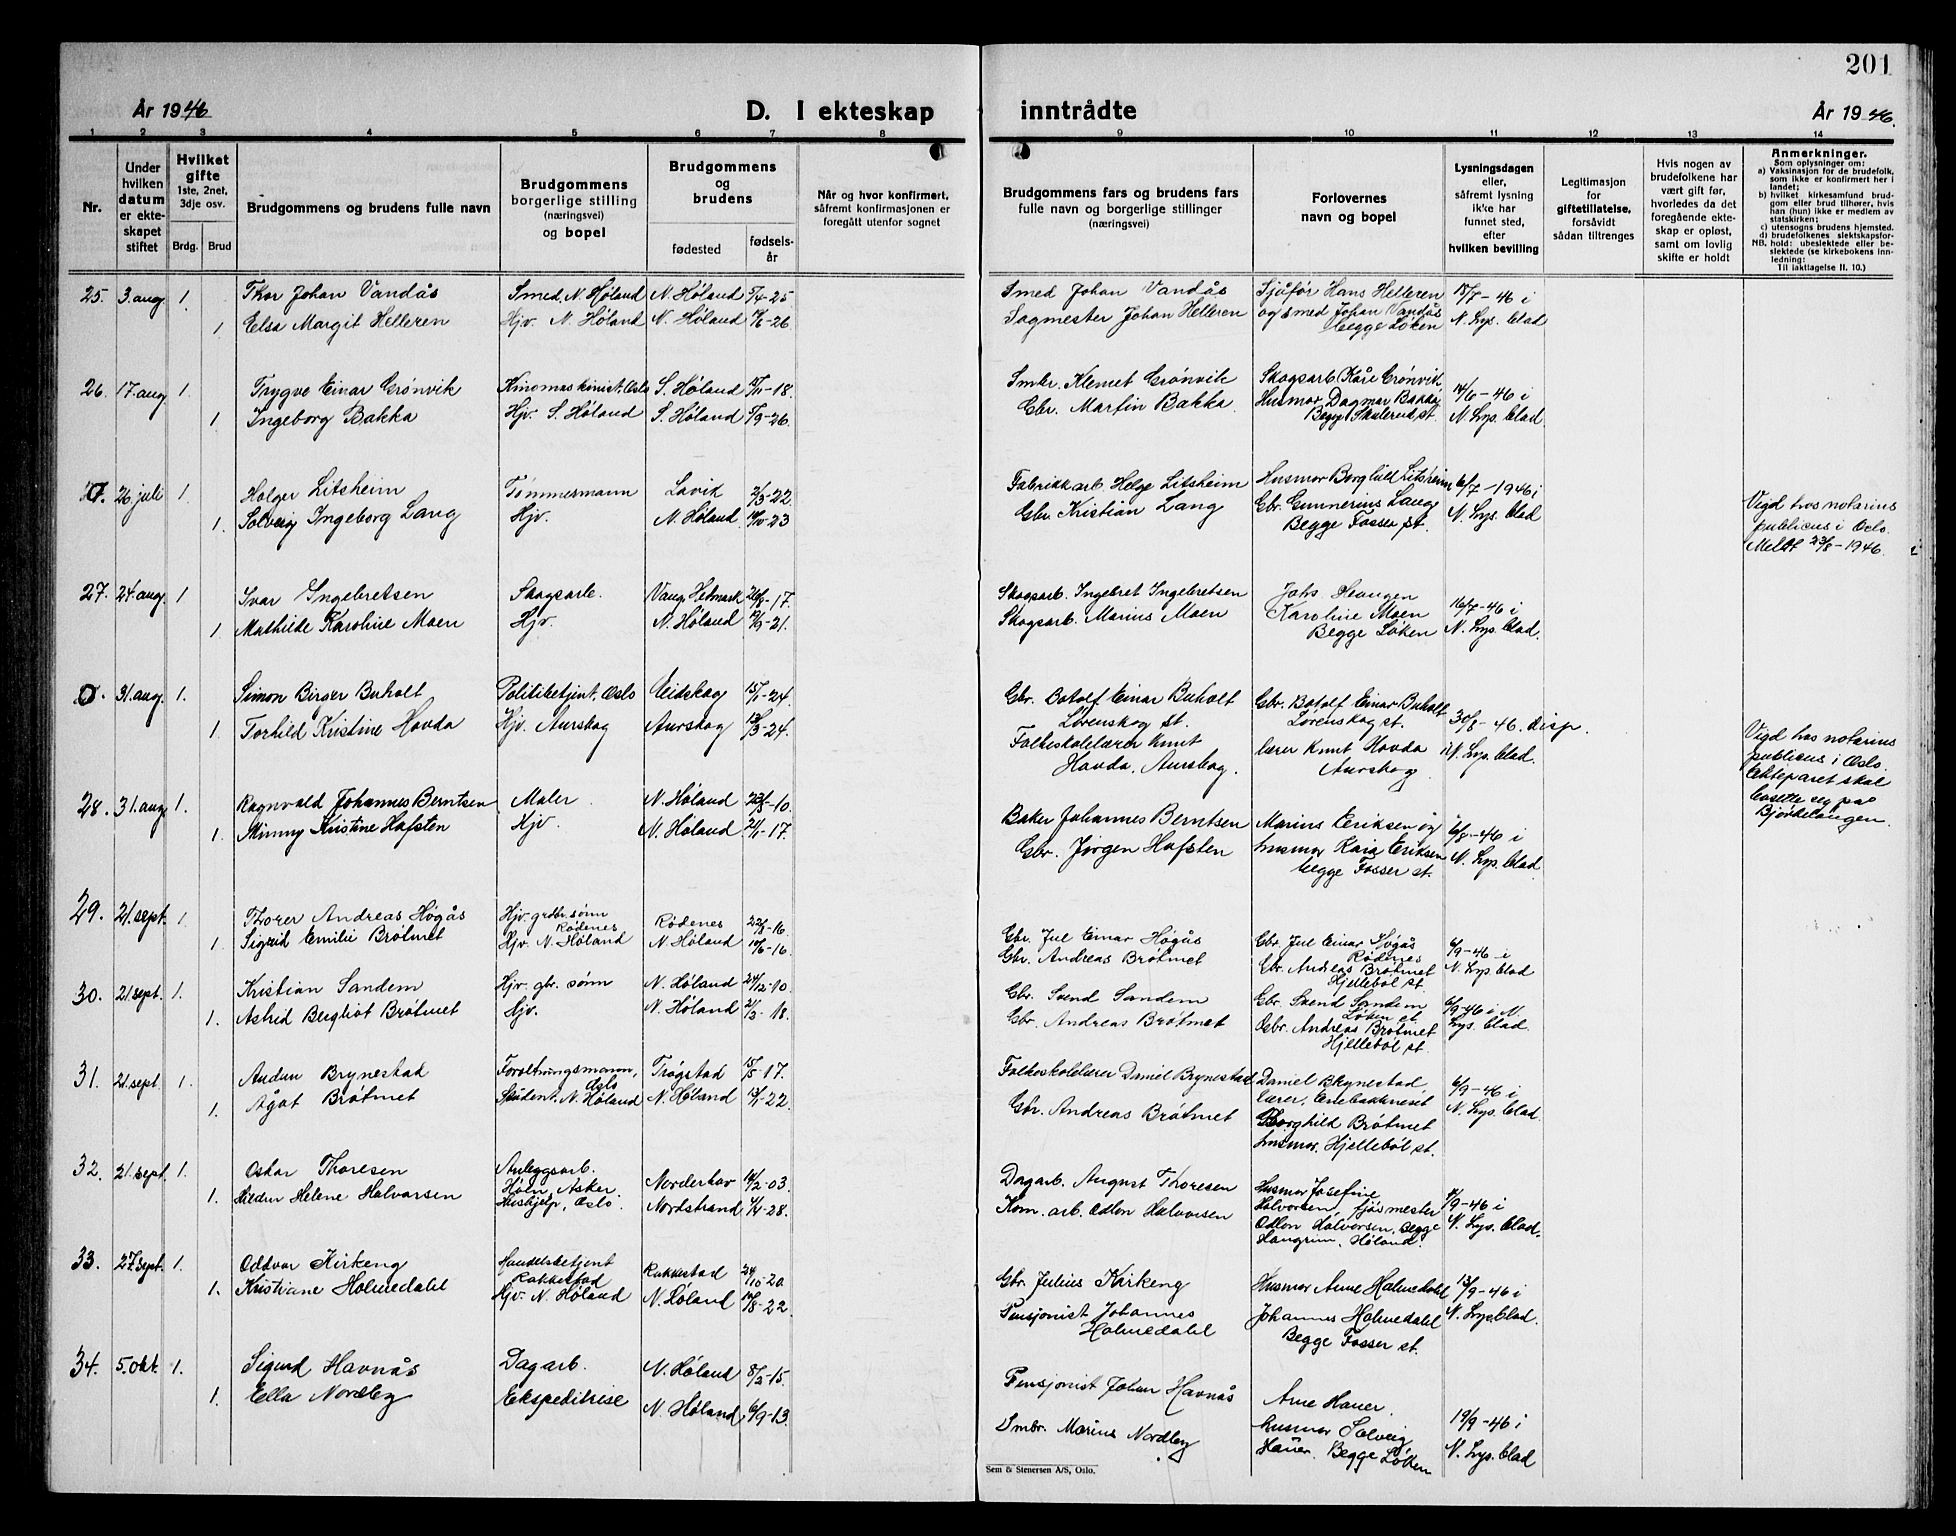 201
År 1946
D. I ekteskap inntrådte
År 1946.
1 2 3 4 5 6 7 8 9 10 11 12 13 14
Nr.
Under hvilken datum er ekteskapet stiftet
Hvilket gifte 1ste, 2net, 3dje osv.
Brdg. Brud
Brudgommens og brudens fulle navn
Brudgommens borgerlige stilling (næringsvei) og bopel
Brudgommens og brudens
fødested
fødsels-år
Når og hvor konfirmert,
såfremt konfirmasjonen er
foregått utenfor sognet
Brudgommens fars og brudens fars
fulle navn og borgerlige stillinger
(næringsvei)
Forlovernes
navn og bopel
Lysningsdagen
eller,
såfremt lysning
ikke har
funnet sted,
efter
hvilken bevilling
Legitimasjon
for
giftetillatelse,
forsåvidt
sådan tiltrenges
Hvis nogen av
brudefolkene har
vært gift før,
hvorledes da det
foregående ekte-
skap er opløst,
samt om lovlig
skifte er holdt
Anmerkninger.
Som oplysninger om:
a) Vaksinasjon for de brudefolk,
som ikke er konfirmert her i
landet;
b) hvilket kirkesamfund brud-
gom eller brud tilhører, hvis
han (hun) ikke er medlem av
statskirken;
c) utensogns brudens hjemsted.
d) brudefolkenes slektskapsfor-
NB. hold: ubeslektede eller be-
slektede (se kirkebokens inn-
ledning:
Til iakttagelse II. 10.)
25. 3. aug. 1. Thor Johan Vandås Smed, N. Høland N. Høland 5/4-25 Smed Johan Vandås Sjåfør Hans Helleren 15/7-46 i
1 Elsa Margit Helleren Hjv. N. Høland N. Høland -26 Sagmester Johan Helleren og smed Johan Vandås N. Lys. blad
begge Løken
26. 17. aug. 1. Trygve Einar Grønvik Kinomaskinist, Oslo S. Høland -18 Smbr. Klemet Grønvik Skogsarb. Kåre Grønvik 14/6-46 i
1 Ingeborg Bakka Hjv. S. Høland S. Høland 5/9-26. Gbr. Martin Bakka. Husmor Dagmar Bakka N. Lys. blad
Begge Skulerud st.
0. 26. juli 1. Holger Litsheim Tømmermann Lavik 2/3-22 Fabrikkarb. Helge Litsheim Husmor Borghild Litsheim 6/7-1946 i
1. Solveig Ingeborg Lang Hjv. N. Høland -23 Gbr. Kristian Lang Gbr. Gunnerius Lang N. Lys. blad
Begge Fosser st.
Vigd hos notarius
publicus i Oslo.
Meldt 23/8-1946.
27. 24. aug. 1 Ivar Ingebretsen Skogsarb. Vang Hedmark -17. Skogsarb. Ingebret Ingebretsen Johs Haugen 16/7-46 i
1 Mathilde Karoline Moen Hjv. N. Høland -21. Skogsarb. Marius Moen Karoline Moen N. Lys. blad.
Begge Løken
0. 31. aug. 1. Simon Birger Buholt Politibetjent, Oslo Eidskog 15/1-24. Gbr. Botolf Einar Buholt Gbr. Botolf Einar Buholt
Lørenskog st. Lørenskog st. 30/8-46. disp.
1. Torhild Kristine Hovda Hjv. Aurskog Aurskog 12/3-24. Folkeskolelærer Knut lærer Knut Hovda i N. Lys. blad.
Hovda, Aurskog. Aurskog
Vigd hos notarius
publicus i Oslo.
Ekteparet skal
bosette seg på
Bjørkelangen.
28. 31. aug. 1. Ragnvald Johannes Berntsen Maler. N. Høland -10. Baker Johannes Berntsen Marius Eriksen og 6/8-46 i
1. Mimmy Kristine Hafsten Hjv. N. Høland 21/1-17. Gbr. Jørgen Hafsten husmor Kaia Eriksen N. Lys. blad.
begge Fosser st.
29. 21. sept. 1. Thorer Andreas Høgås Hjv. grdbr. sønn Rødenes Rødenes -16. Gbr. Jul Einar Høgås Gbr. Jul Einar Høgås Rødenes 6/9-46 i
1. Sigrid Emilie Bråtmet Hjv. N. Høland N. Høland -16. Gbr. Andreas Bråtmet Gbr. Andreas Bråtmet N. Lys blad
Hjellebøl st.
30. 21. sept. 1. Kristian Sandem Hjv. gbr. sønn N. Høland 24/12-10. Gbr. Svend Sandem Gbr. Svend Sandem 6/9-46 i N.
Løken st. Lys. blad.
1. Astrid Bergliot Bråtmet Hjv. N. Høland 21/3-18. Gbr. Andreas Bråtmet Gbr. Andreas Bråtmet
Hjellebøl st.
31. 21. sept. 1. Audun Brynestad Forvaltningsmann, Oslo Trøgstad 15/5-17. Folkeskolelærer Daniel Brynestad Daniel Brynestad, 6/9-46 i
1. Ågot Bråtmet Student, N. Høland N. Høland -22. Gbr. Andreas Bråtmet lærer, Enebakkneset N. Lys. blad.
Borghild Bråtmet
husmor, Hjellebøl st.
32. 21. sept 1. Oskar Thoresen Anleggsarb. Holn, Asker. Norderhov 14/2-03. Dagarb. August Thoresen Husmor Josefine 9/9-46 i
1. Hildur Helene Halvorsen Hushjelp, Oslo. Nordstrand -28. Kom. arb. Odlon Halvorsen Halvorsen, fjøsmester N. Lys. blad.
Odlon Halvorsen, Begge
Hangrim, Høland.
33. 27. sept. 1. Oddvar Kirkeng Handelsbetjent Rakkestad Rakkestad 24/10-20. Gbr. Julius Kirkeng Husmor Anne Holmedahl 13/9-46 i
1. Kristiane Holmedahl Hjv. N. Høland N. Høland -22. Pensjonist Johannes Johannes Holmedahl N. Lys. blad.
Holmedahl Begge Fosser st.
34. 5. okt. 1. Sigurd Havnås Dagarb. N. Høland 8/2-15. Pensjonist Johan Havnås Arne Hauer. 19/9-46 i
1. Ella Nordby Ekspeditrise N. Høland 6/9-13. Smbr. Marius Nordby husmor Solveig N. Lys. blad
Hauer. Begge Løken
Sem & Stenersen A/S, Oslo.